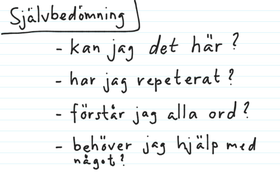 Självbedömning
- kan jag det här?
- har jag repeterat?
- förstår jag alla ord?
- behöver jag hjälp med
något?